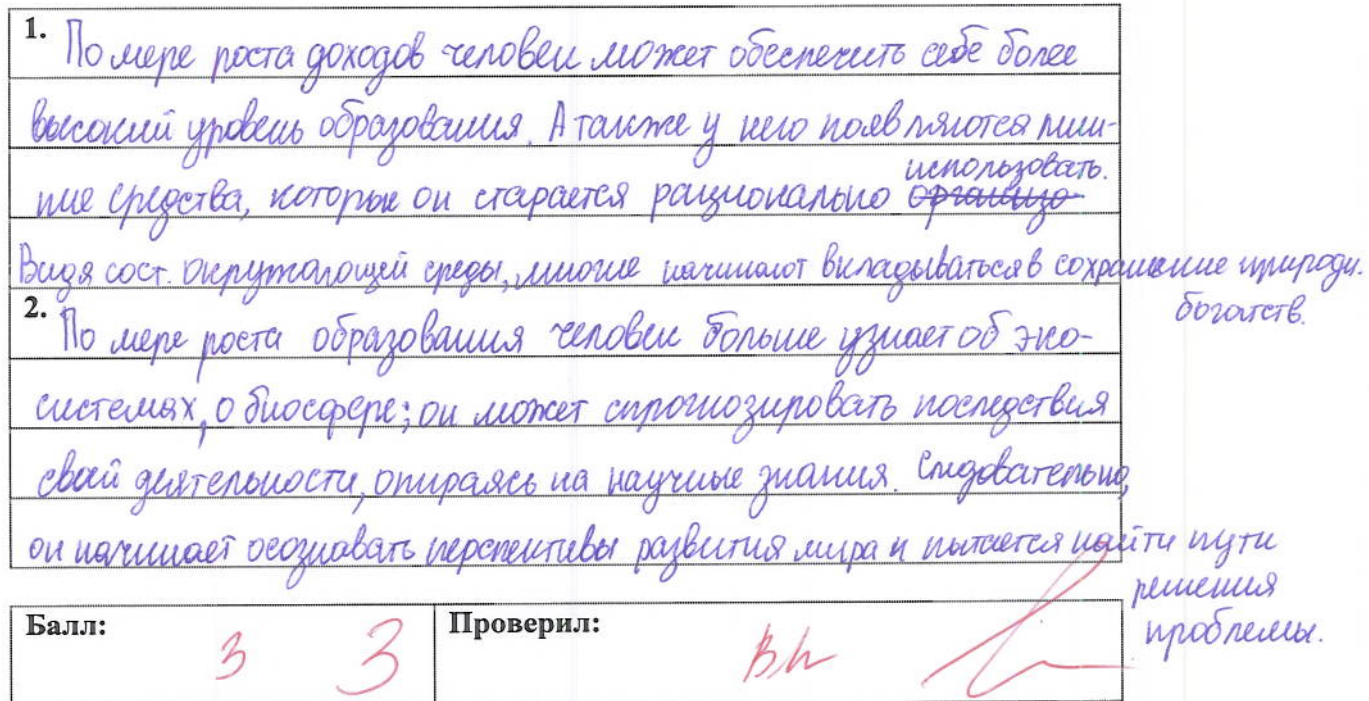 1. По мере роста доходов человек может обеспечить себе более
высокий уровень образования. А также у него появляются лиш-
ние средства, которые он старается рационально использовать.
Видя сост. окружающей среды, многие начинают вкладываться в сохранение природн.
богатств.
2. По мере роста образования человек больше узнает об эко-
системах, о биосфере; он может спрогнозировать последствия
своей деятельности, опираясь на научные знания. Следовательно,
он начинает осознавать перспективы развития мира и пытается найти пути
решения
проблемы.
Балл: 3 3 Проверил: